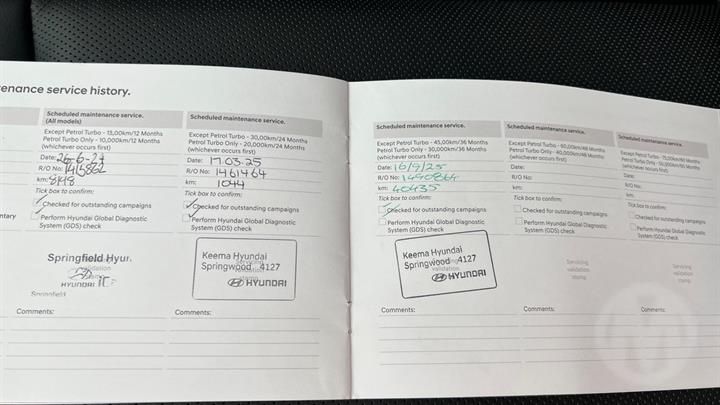 enance service history.
Scheduled maintenance service.
(All models)
Except Petrol Turbo - 15,000km/12 Months
Petrol Turbo Only - 10,000km/12 Months
(whichever occurs first)
Date:
R/O No:
km:
Tick box to confirm:
Checked for outstanding campaigns
Perform Hyundai Global Diagnostic
System (GDS) check
Springfield Hyun
HYUNDAI
Springfield
Comments:
Scheduled maintenance service.
Except Petrol Turbo - 30,000km/24 Months
Petrol Turbo Only - 20,000km/24 Months
(whichever occurs first)
Date: 17.03.25
R/O No: 1461464
km:
Tick box to confirm:
Checked for outstanding campaigns
Perform Hyundai Global Diagnostic
System (GDS) check
Keema Hyundai
Springwood 4127
HYUNDAI
Comments:
Scheduled maintenance service.
Except Petrol Turbo - 45,000km/36 Months
Petrol Turbo Only - 30,000km/36 Months
(whichever occurs first)
Date: 16/9/25
R/O No: 1490864
km: 40435
Tick box to confirm:
Checked for outstanding campaigns
Perform Hyundai Global Diagnostic
System (GDS) check
Keema Hyundai
Springwood 4127
HYUNDAI
Comments:
Scheduled maintenance service.
Except Petrol Turbo - 60,000km/48 Months
Petrol Turbo Only - 40,000km/48 Months
(whichever occurs first)
Date:
R/O No:
km:
Tick box to confirm:
Checked for outstanding campaigns
Perform Hyundai Global Diagnostic
System (GDS) check
Servicing
validation
stamp
Comments:
Scheduled maintenance service.
Except Petrol Turbo - 75,000km/60 Months
Petrol Turbo Only - 50,000km/60 Months
(whichever occurs first)
Date:
R/O No:
km:
Tick box to confirm:
Checked for outstanding campaigns
Perform Hyundai Global Diagnostic
System (GDS) check
Servicing
validation
stamp
Comments: